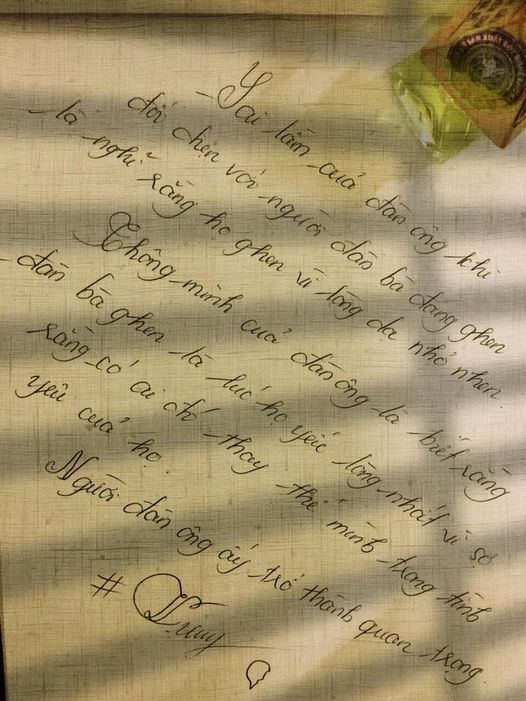 - Sai lầm của đàn ông khi
đối diện với người đàn bà đang ghen
là nghĩ rằng họ ghen vì lòng dạ nhỏ nhen.
Thông minh của đàn ông là biết rằng
- đàn bà ghen là lúc họ yếu lòng nhất vì sợ
rằng có ai đó thay thế mình trong tình
yêu của họ.
Người đàn ông ấy trở thành quan trọng.
#